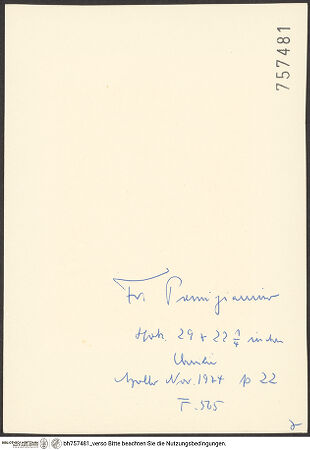 757481
Fr. Parmigianino
29 x 22 ¼ inches
Apollo Nov. 1974 p 22
F. 505
bh757481_verso Bitte beachten Sie die Nutzungsbedingungen.